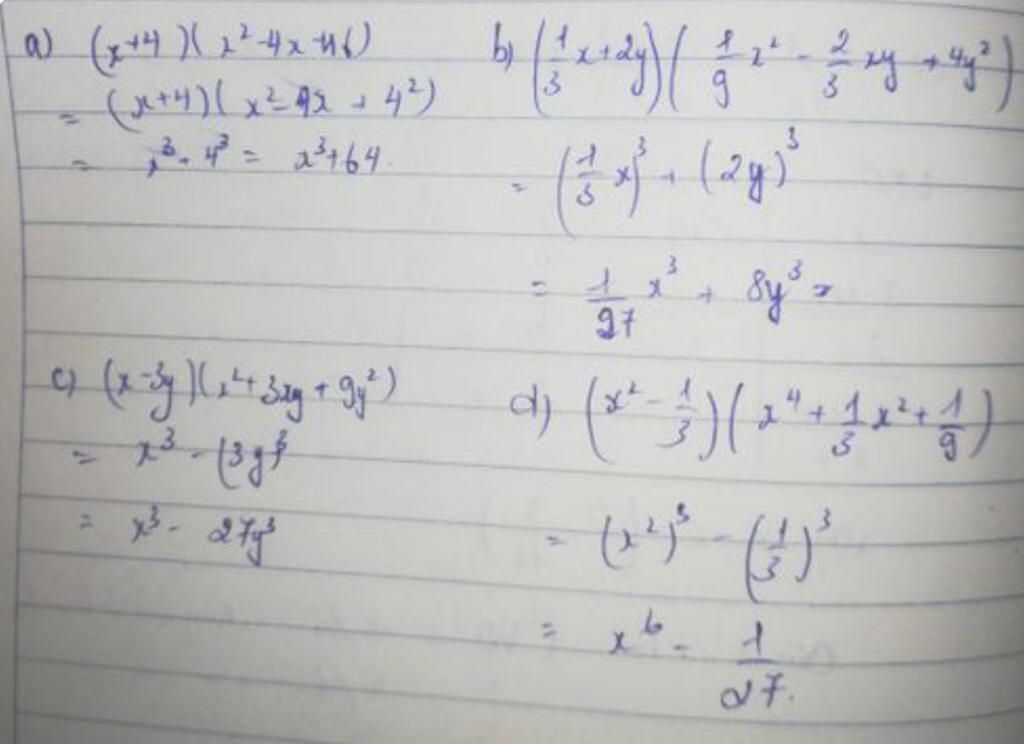 a) (x+4)(x² - 4x + 16)
= (x+4)(x² - 4x + 4²)
= x³ - 4³ = x³ + 64.
b) (1/3 x + 2y)(1/9 x² - 2/3 xy + 4y²)
= (1/3 x)³ + (2y)³
= 1/27 x³ + 8y³ =
c) (x - 3y)(x² + 3xy + 9y²)
= x³ - (3y)³
= x³ - 27y³
d) (x² - 1/3)(x⁴ + 1/3 x² + 1/9)
= (x²)³ - (1/3)³
= x⁶ - 1/27.